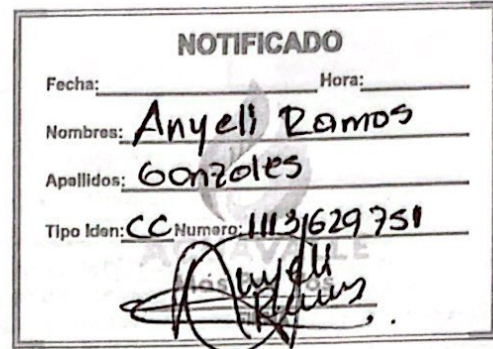 NOTIFICADO
Fecha: Hora:
Nombres: Anyeli Ramos
Apellidos: Gonzoles
Tipo Iden: CC Numero: 1113629751
Anyeli
Ramos